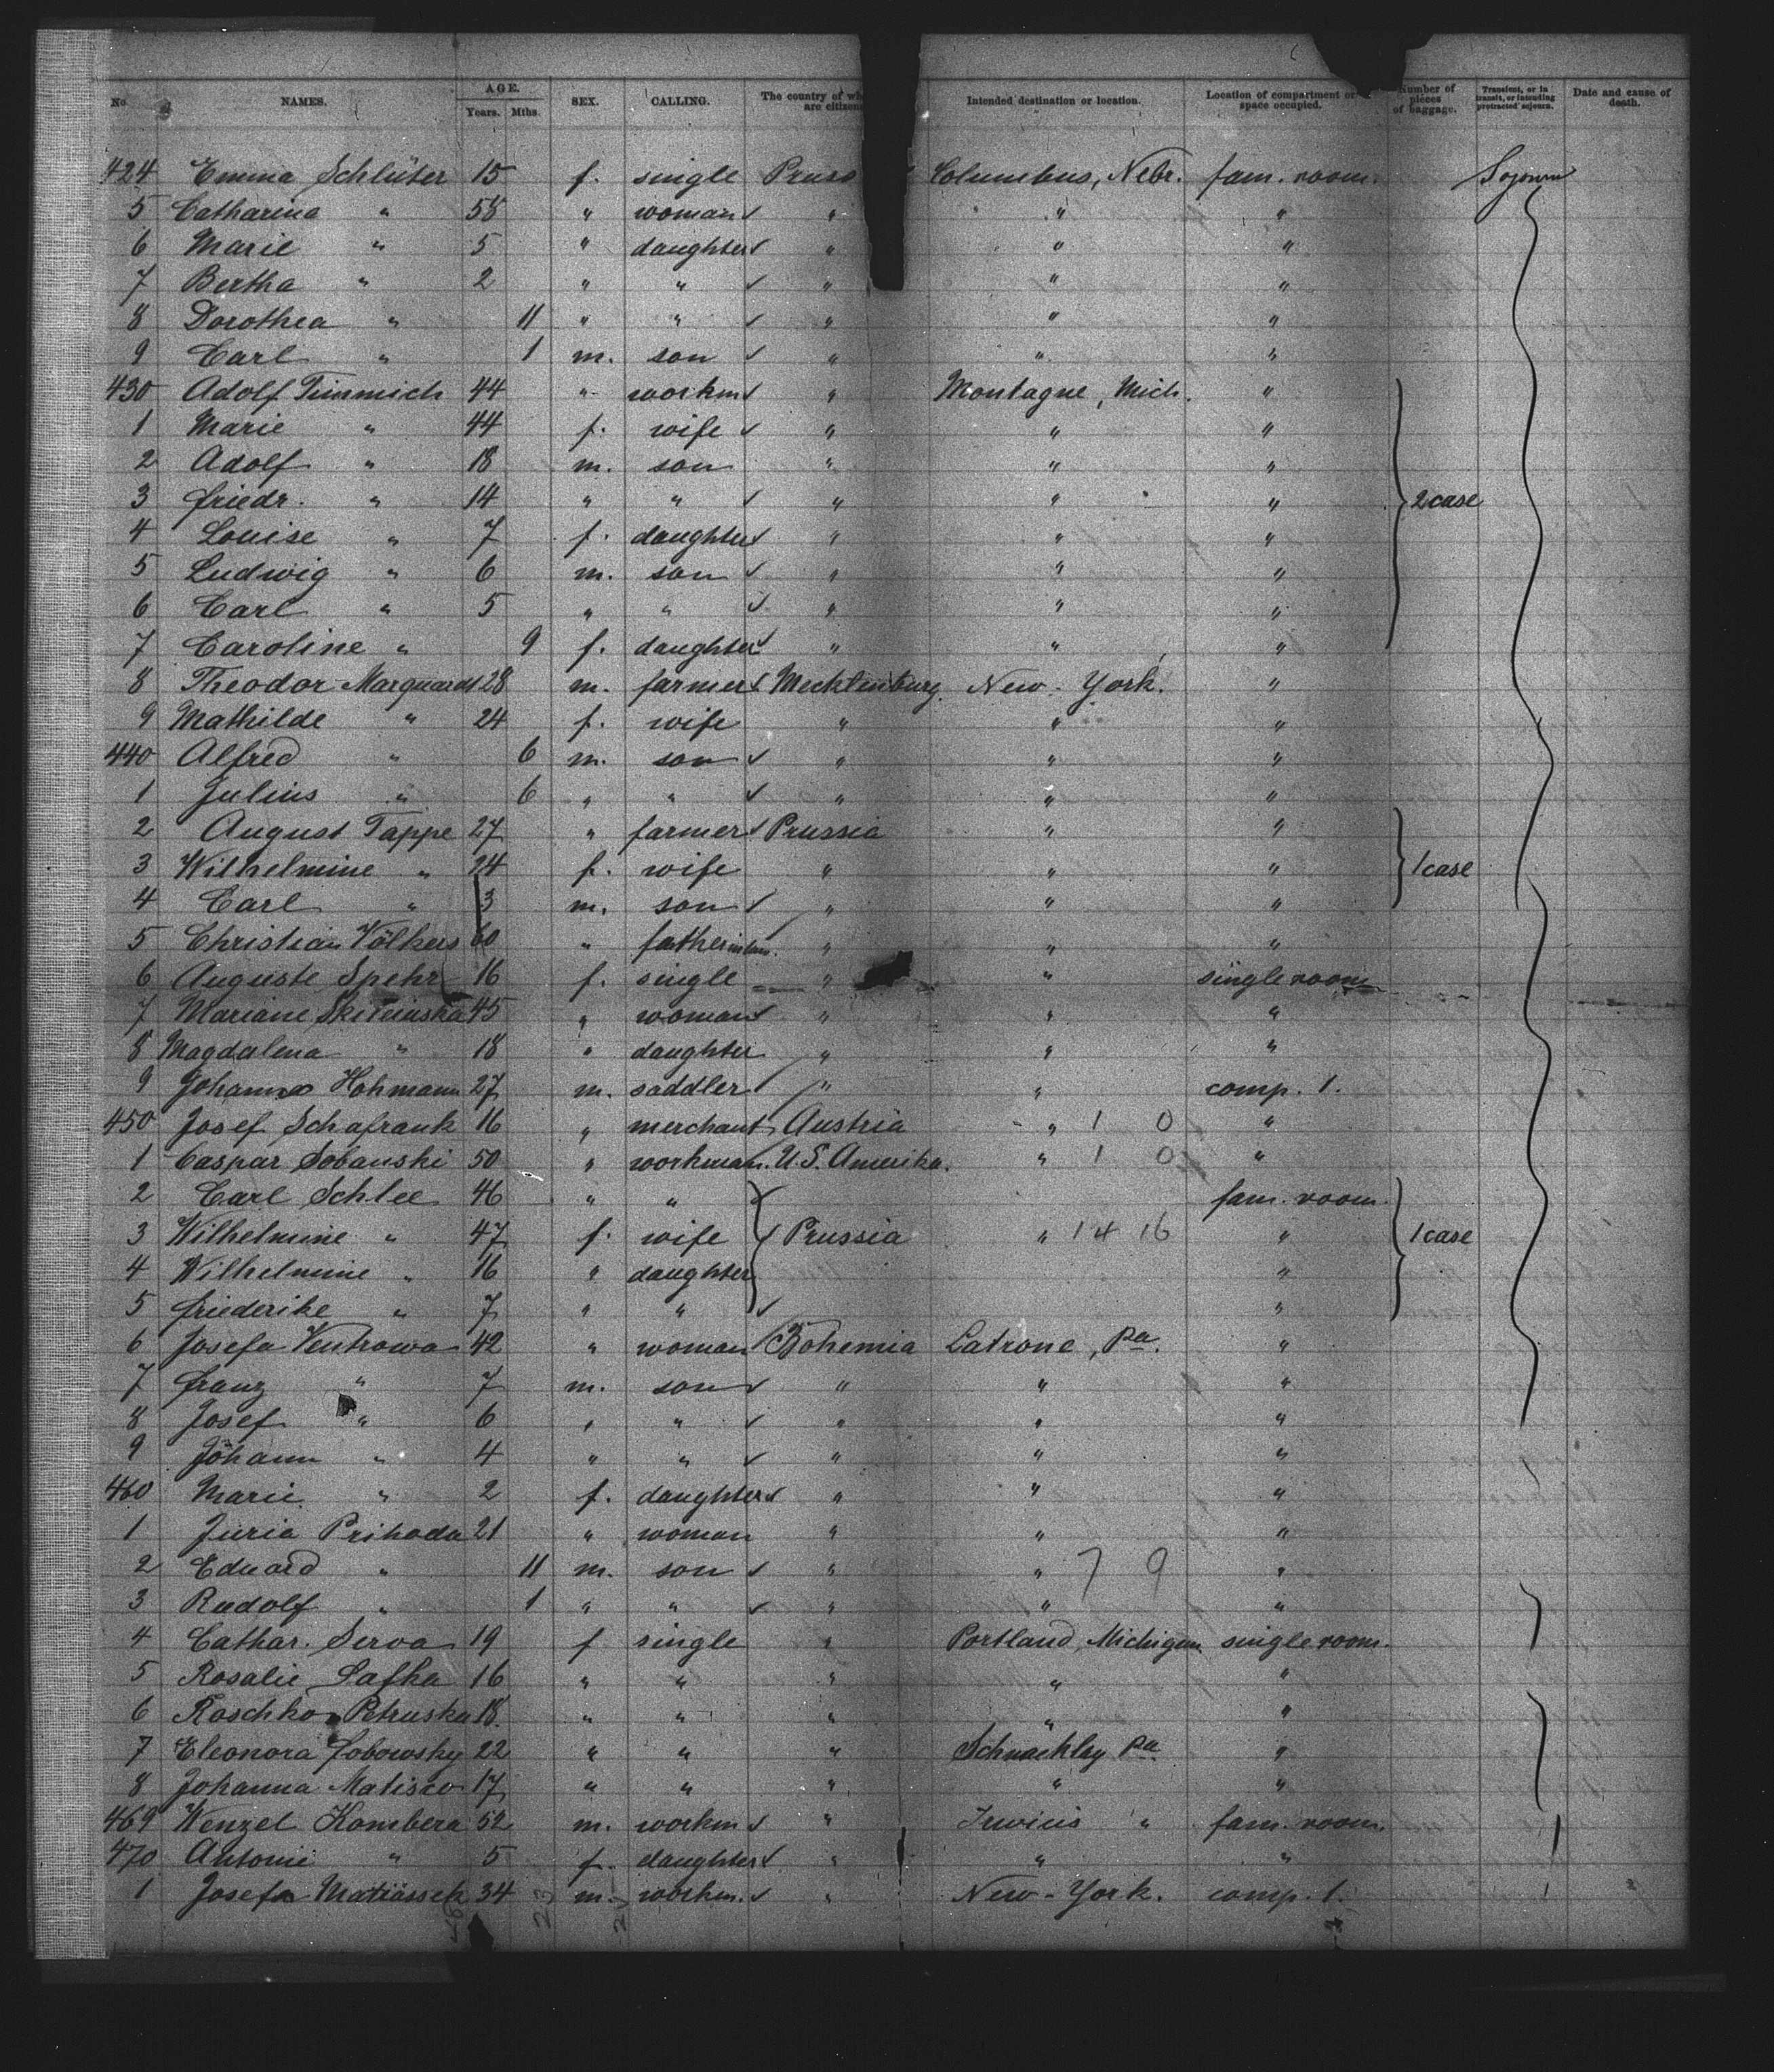 No NAMES. AGE. Years. Mths. SEX. CALLING. The country of wh are citizen Intended destination or location. Location of compartment or space occupied. Number of pieces of baggage. Transient, or in transit, or intending protracted sojourn. Date and cause of death.
424 Emma Schlüter 15 f. single Pruss Columbus, Nebr. fam. room. Sojourn
5 Catharina " 58 " woman " " "
6 Marie " 5 " daughter " " "
7 Bertha " 2 " " " " "
8 Dorothea " 11 " " " " "
9 Carl " 1 m. son " " "
430 Adolf Timmich 44 " workm " Montague, Mich. "
1 Marie " 44 f. wife " " "
2 Adolf " 18 m. son " " "
3 Friedr. " 14 " " " " " 2 case
4 Louise " 7 f. daughter " " "
5 Ludwig " 6 m. son " " "
6 Carl " 5 " " " " "
7 Caroline " 9 f. daughter " " "
8 Theodor Marquardt 28 m. farmer Mecklenburg. New-York. "
9 Mathilde " 24 f. wife " " "
440 Alfred " 6 m. son " " "
1 Julius " 6 " " " " "
2 August Tappe 27 " farmer Prussia " "
3 Wilhelmine " 24 f. wife " " " 1 case
4 Carl " 3 m. son " " "
5 Christian Völkers 60 " father in law. " " "
6 Auguste Spehr 16 f. single " " single room
7 Mariane 45 " woman " " "
8 Magdalena " 18 " daughter " " "
9 Johann Hohmann 27 m. saddler " " comp. 1.
450 Josef Schafrank 16 " merchant Austria " 1 0 "
1 Caspar Sobanski 50 " workman. U.S. Amerika. " 1 0 "
2 Carl Schlee 46 " " fam. room.
3 Wilhelmine " 47 f. wife Prussia " 14 16 " 1 case
4 Wilhelmine " 16 " daughter "
5 Friederike " 7 " " "
6 Josefa Ventrowa 42 " woman Bohemia Latrone, Pa. "
7 Franz " 7 m. son " " "
8 Josef " 6 " " " " "
9 Johann " 4 " " " " "
460 Marie " 2 f. daughter " " "
1 Juria Prihoda 21 " woman " " "
2 Eduard " 11 m. son " " 7 9 "
3 Rudolf " 1 " " " " "
4 Cathar. Serva 19 f single " Portland, Michigan single room.
5 Rosalie Safka 16 " " " " "
6 Roschko Petruska 18 " " " " "
7 Eleonora Jobowsky 22 " " " Pa "
8 Johanna Matisco 17 " " " " "
469 Wenzel Kombera 52 m. workm " Irwins " fam. room.
470 Antonie " 5 f. daughter " " "
1 Josef Matiassek 34 m. workm. " New-York. comp. 1.